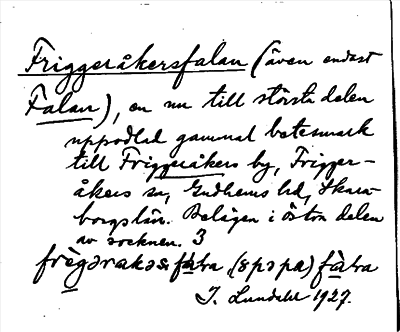 Friggeråkersfalan (även endast
Falan), en nu till största delen
uppodlad gammal betesmark
till Friggeråkers by, Frigger-
åkers sn, Gudhems hd, Skara-
borgs län. Belägen i östra delen
av socknen. 3
fàlra
J. Lundahl 1927.